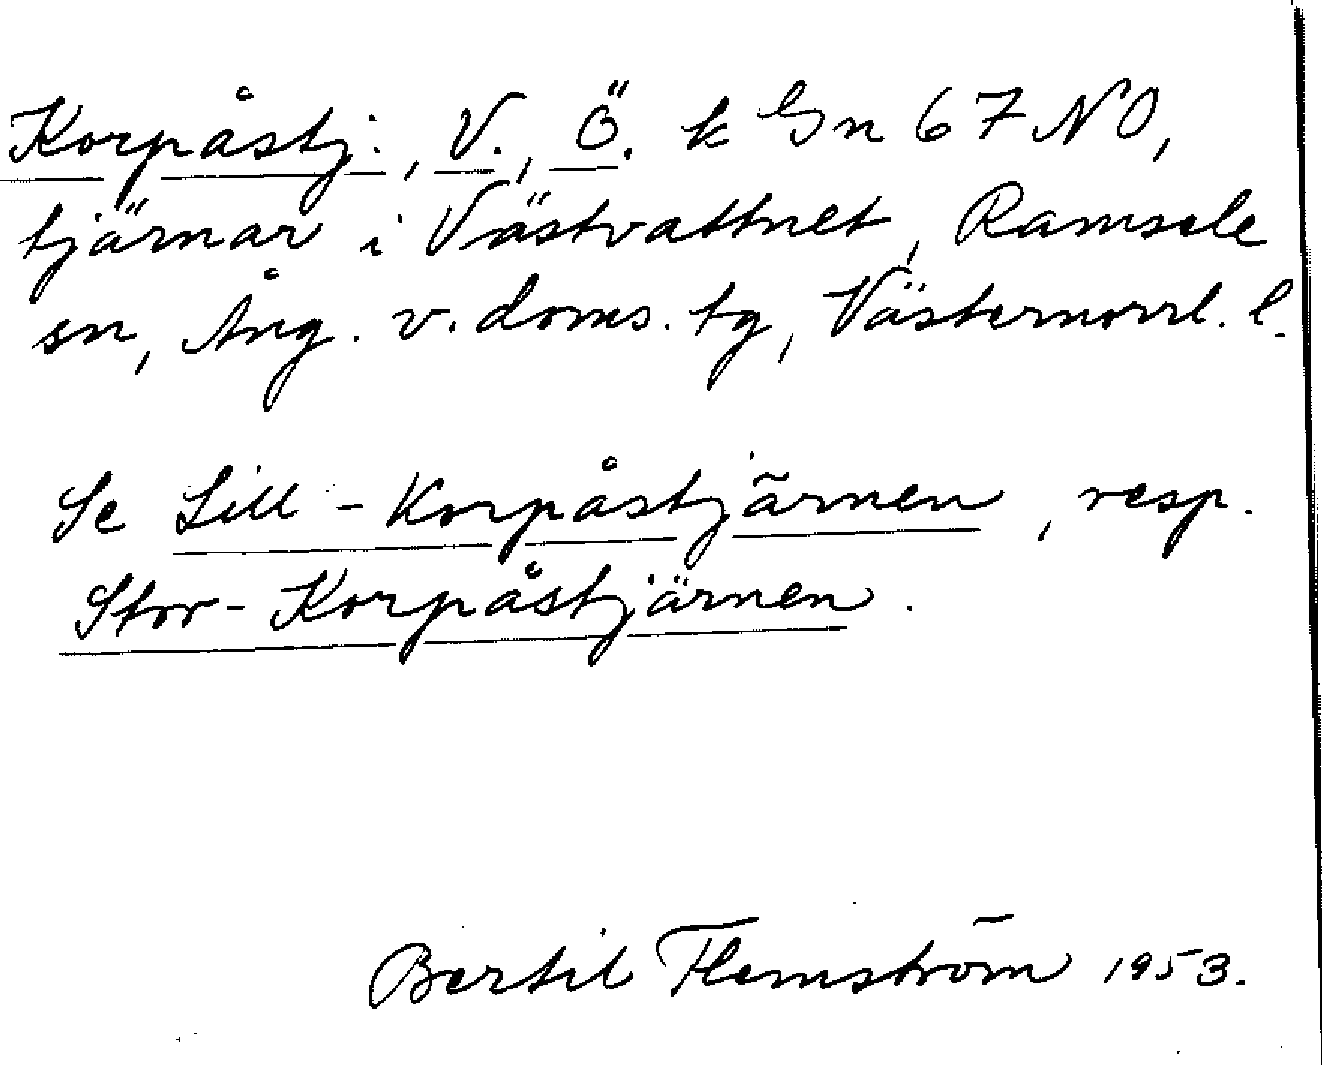 Korpåstj:, V., Ö. k Gn 67 NO,
tjärnar i Västvattnet, Ramsele
sn, Ång. v. doms. tg, Västernorrl. l.
Se Lill-Korpåstjärnen, resp.
Stor-Korpåstjärnen.
Bertil Flemström 1953.